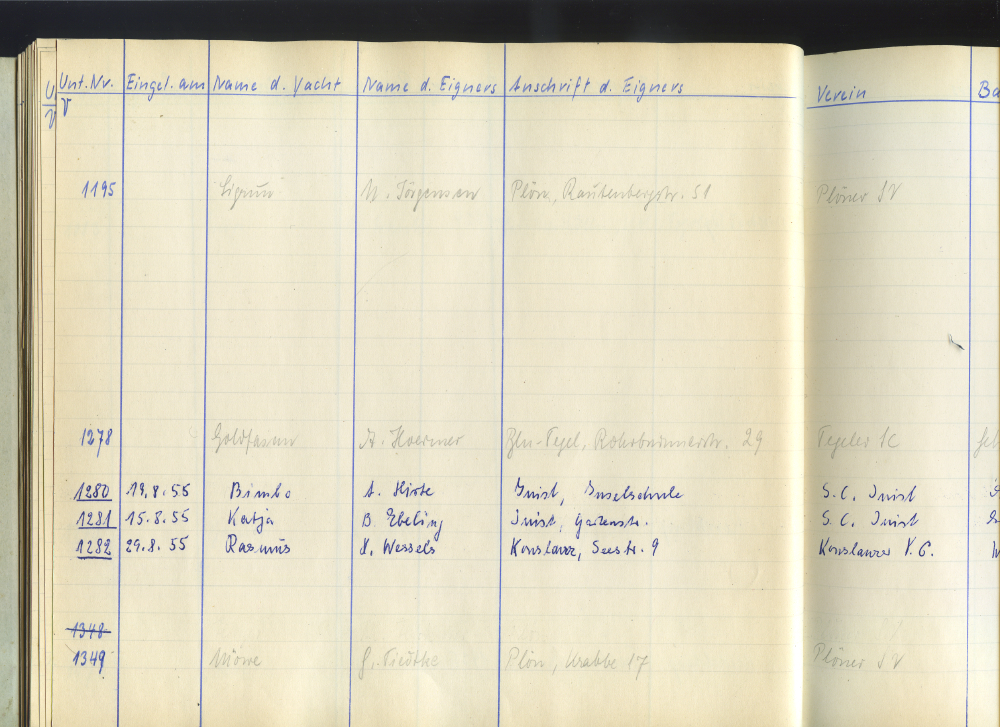 U Unt. Nr. Eingel. am Name d. Yacht Name d. Eigners Anschrift d. Eigners Verein Ba
V V
1195 Sigrun Jörgensen Plön, Rautenbergstr. 51 Plöner SV
1278 Goldfasan A. Hoermer Bln-Tegel, 29 Tegeler SC
1280 19.8.55 Bimbo A. Hirte Juist, Inselschule S.C. Juist
1281 15.8.55 Katja B. Ebeling Juist, S.C. Juist
1282 29.8.55 Rasmus H. Wessels Konstanz, Seestr. 9 Konstanzer Y.C.
1348
1349 Möwe Plön, Krabbe 17 Plöner SV